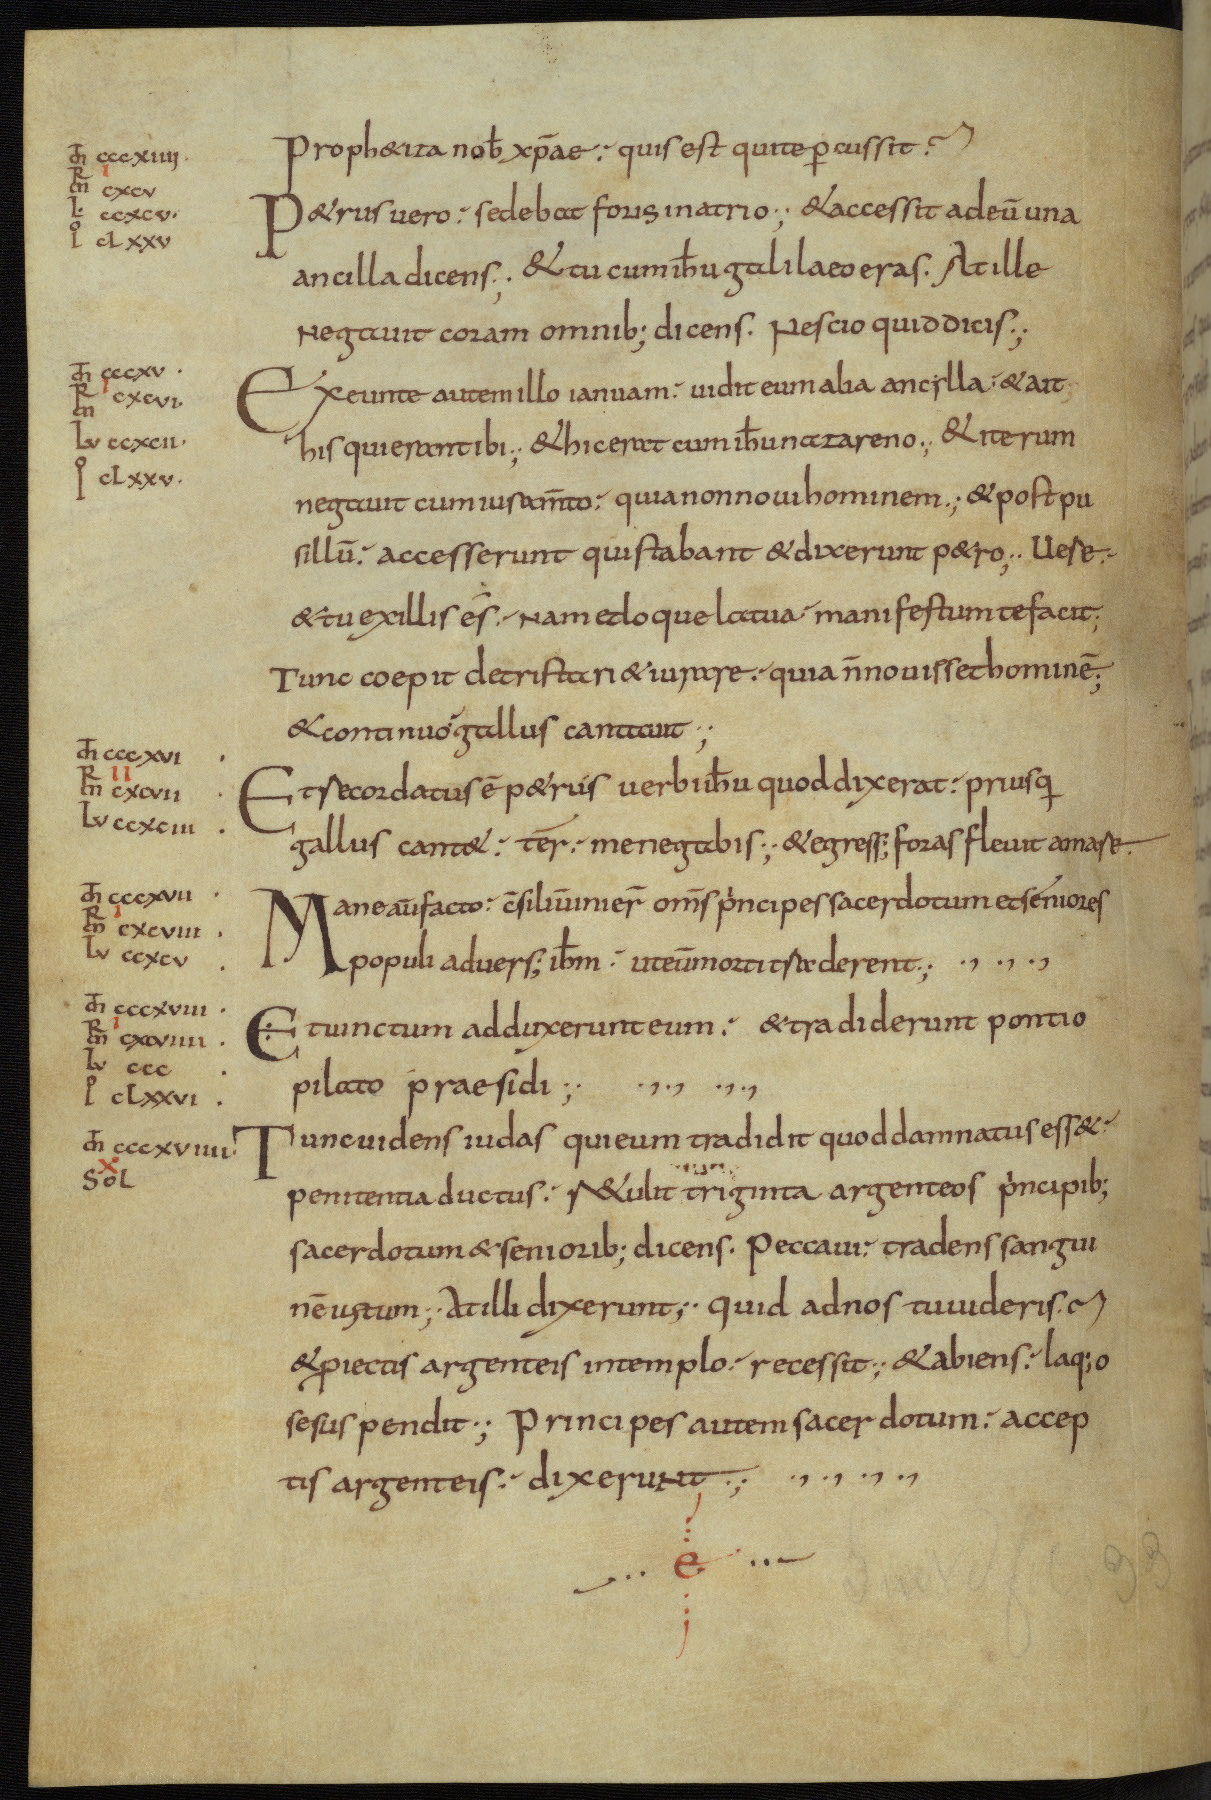 Mt cccxiiij.
i
MR cxcv
L. ccxcv.
Io cLxxv
Proph&iza nob̄ xp̄ae: quis est quite ꝑcussit?
P&rus uero: sedebat foris inatrio; &accessit adeū una
ancilla dicens; &tu cum ih̄u galilaeo eras. At ille
Negauit coram omnib; dicens. Nescio quid dicis;
Mt cccxv.
i
MR cxcvi.
Lv ccxcii.
Io cLxxv.
Exeunte autem illo ianuam: uidit eum alia ancylla: & ait
his qui erant ibi; & hic erat cum ih̄u nazareno; & iterum
negauit cum iuram̄to: quia non noui hominem; & post pu
sillū: accesserunt qui stabant & dixerunt p&ro; Uere:
& tu exillis es: Nam et loquela tua manifestum te facit;
Tunc coepit detristari & iurare: quia n̄ nouisset hominē;
& continuo gallus cantauit;
Mt cccxvi.
ii
MR cxcvii.
Lv ccxciii.
Et recordatus ē p&rus uerbi ih̄u quod dixerat: priusq̄
gallus cant&: ter: me negabis; & egress; foras fleuit amare.
Mt cccxvii.
i
MR cxcviii.
Lv ccxcv.
Mane aū facto: c̄siliū inier̄ om̄s p̍ncipes sacerdotum et seniores
populi aduers; ih̄m: ut eū morti traderent;
Mt cccxviii.
i
MR cxcviiii.
Lv ccc.
Io cLxxvi.
Et uinctum adduxerunt eum: & tradiderunt pontio
pilato praesidi;
Mt cccxviiii.
x
SoL
Tunc uidens iudas qui eum tradidit quod damnatus ess&:
penitentia ductus: r&ulit triginta argenteos p̍ncipib;
sacerdotum & seniorib; dicens. Peccaui: tradens sangui
nē iustum; At illi dixerunt; quid adnos tu uideris.
& ꝓiectis argenteis in templo: recessit; & abiens: laq;o
se suspendit; Principes autem sacerdotum: accep
tis argenteis: dixerunt;
e